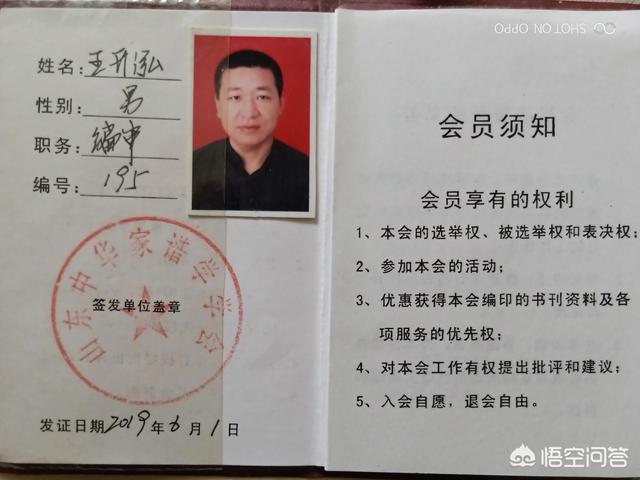 姓名：王升泓
性别：男
职务：编审
编号：195
山东中华家谱学学会
签发单位盖章
发证日期2019年6月1日
SHOT ON OPPO
会员须知
会员享有的权利
1、本会的选举权、被选举权和表决权；
2、参加本会的活动；
3、优惠获得本会编印的书刊资料及各
项服务的优先权；
4、对本会工作有权提出批评和建议；
5、入会自愿，退会自由。
悟空问答